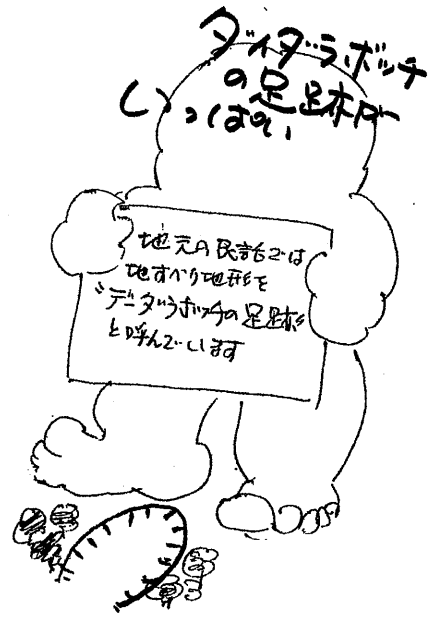 ダイダラボッチ
の足跡が
いっぱい
地元の民話では
地すべり地形を
〝データラボッチの足跡
と呼んでいます